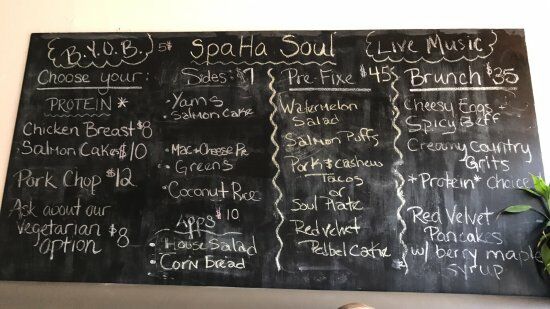 B.Y.O.B. 5$
SpaHa Soul
Live Music
Choose your:
PROTEIN *
Chicken Breast $8
Salmon Cake $10
Pork Chop $12
Ask about our
Vegetarian
Option $8
Sides: $7
• Yams
• Salmon Cake
• Mac + Cheese Pie
• Greens
• Coconut Rice
Apps $10
• House Salad
• Corn Bread
Pre-Fixe $45
Watermelon
Salad
Salmon Puffs
Pork & cashew
Tacos
or
Soul Plate
Red Velvet
Brunch $35
Cheesy Eggs +
Spicy Beff
Creamy Country
Grits
*Protein* Choice
Red Velvet
Pancakes
w/ berry maple
syrup